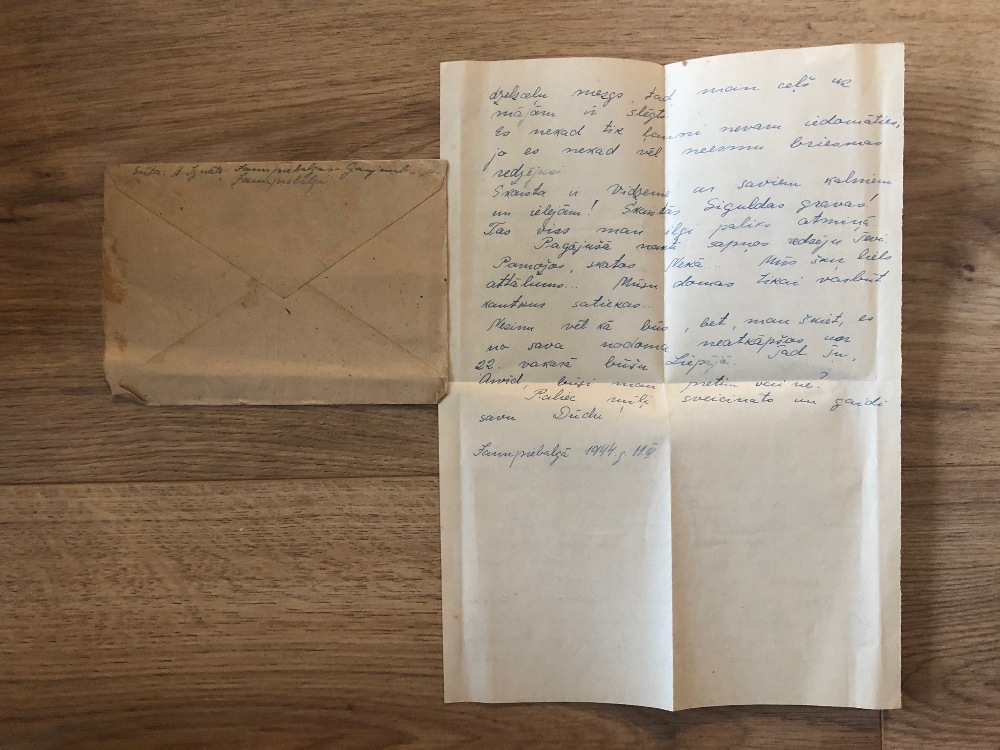 Sūta: A. Ignāts Jaunpiebalgas
Jaunpiebalga
dzelzceļu mezgs, tad man ceļš uz
mājām ir slēgts.
Es nekad tik ļauni nevaru iedomāties,
jo es nekad vēl neesmu briesmas
redzējusi.
Skaista ir Vidzeme ar saviem kalniem
un ielejām! Skaistās Siguldas gravas!
Tas viss man ilgi paliks atmiņā.
Pagājušā nakti sapņos redzēju Tevi.
Pamožos, skatos... Nekā... Mūs šķir liels
attālums... Mūsu domas tikai varbūt
satiekas...
Nezinu vēl kā būs, bet, man šķiet, es
no sava nodoma neatkāpšos un
22. vakarā būšu Liepājā. Tad Tu,
Arvīd, būsi man pretim vai ne?
Paliec mīļi sveicināts un gaidi
savu Dūdu
Jaunpiebalgā 1944. g.